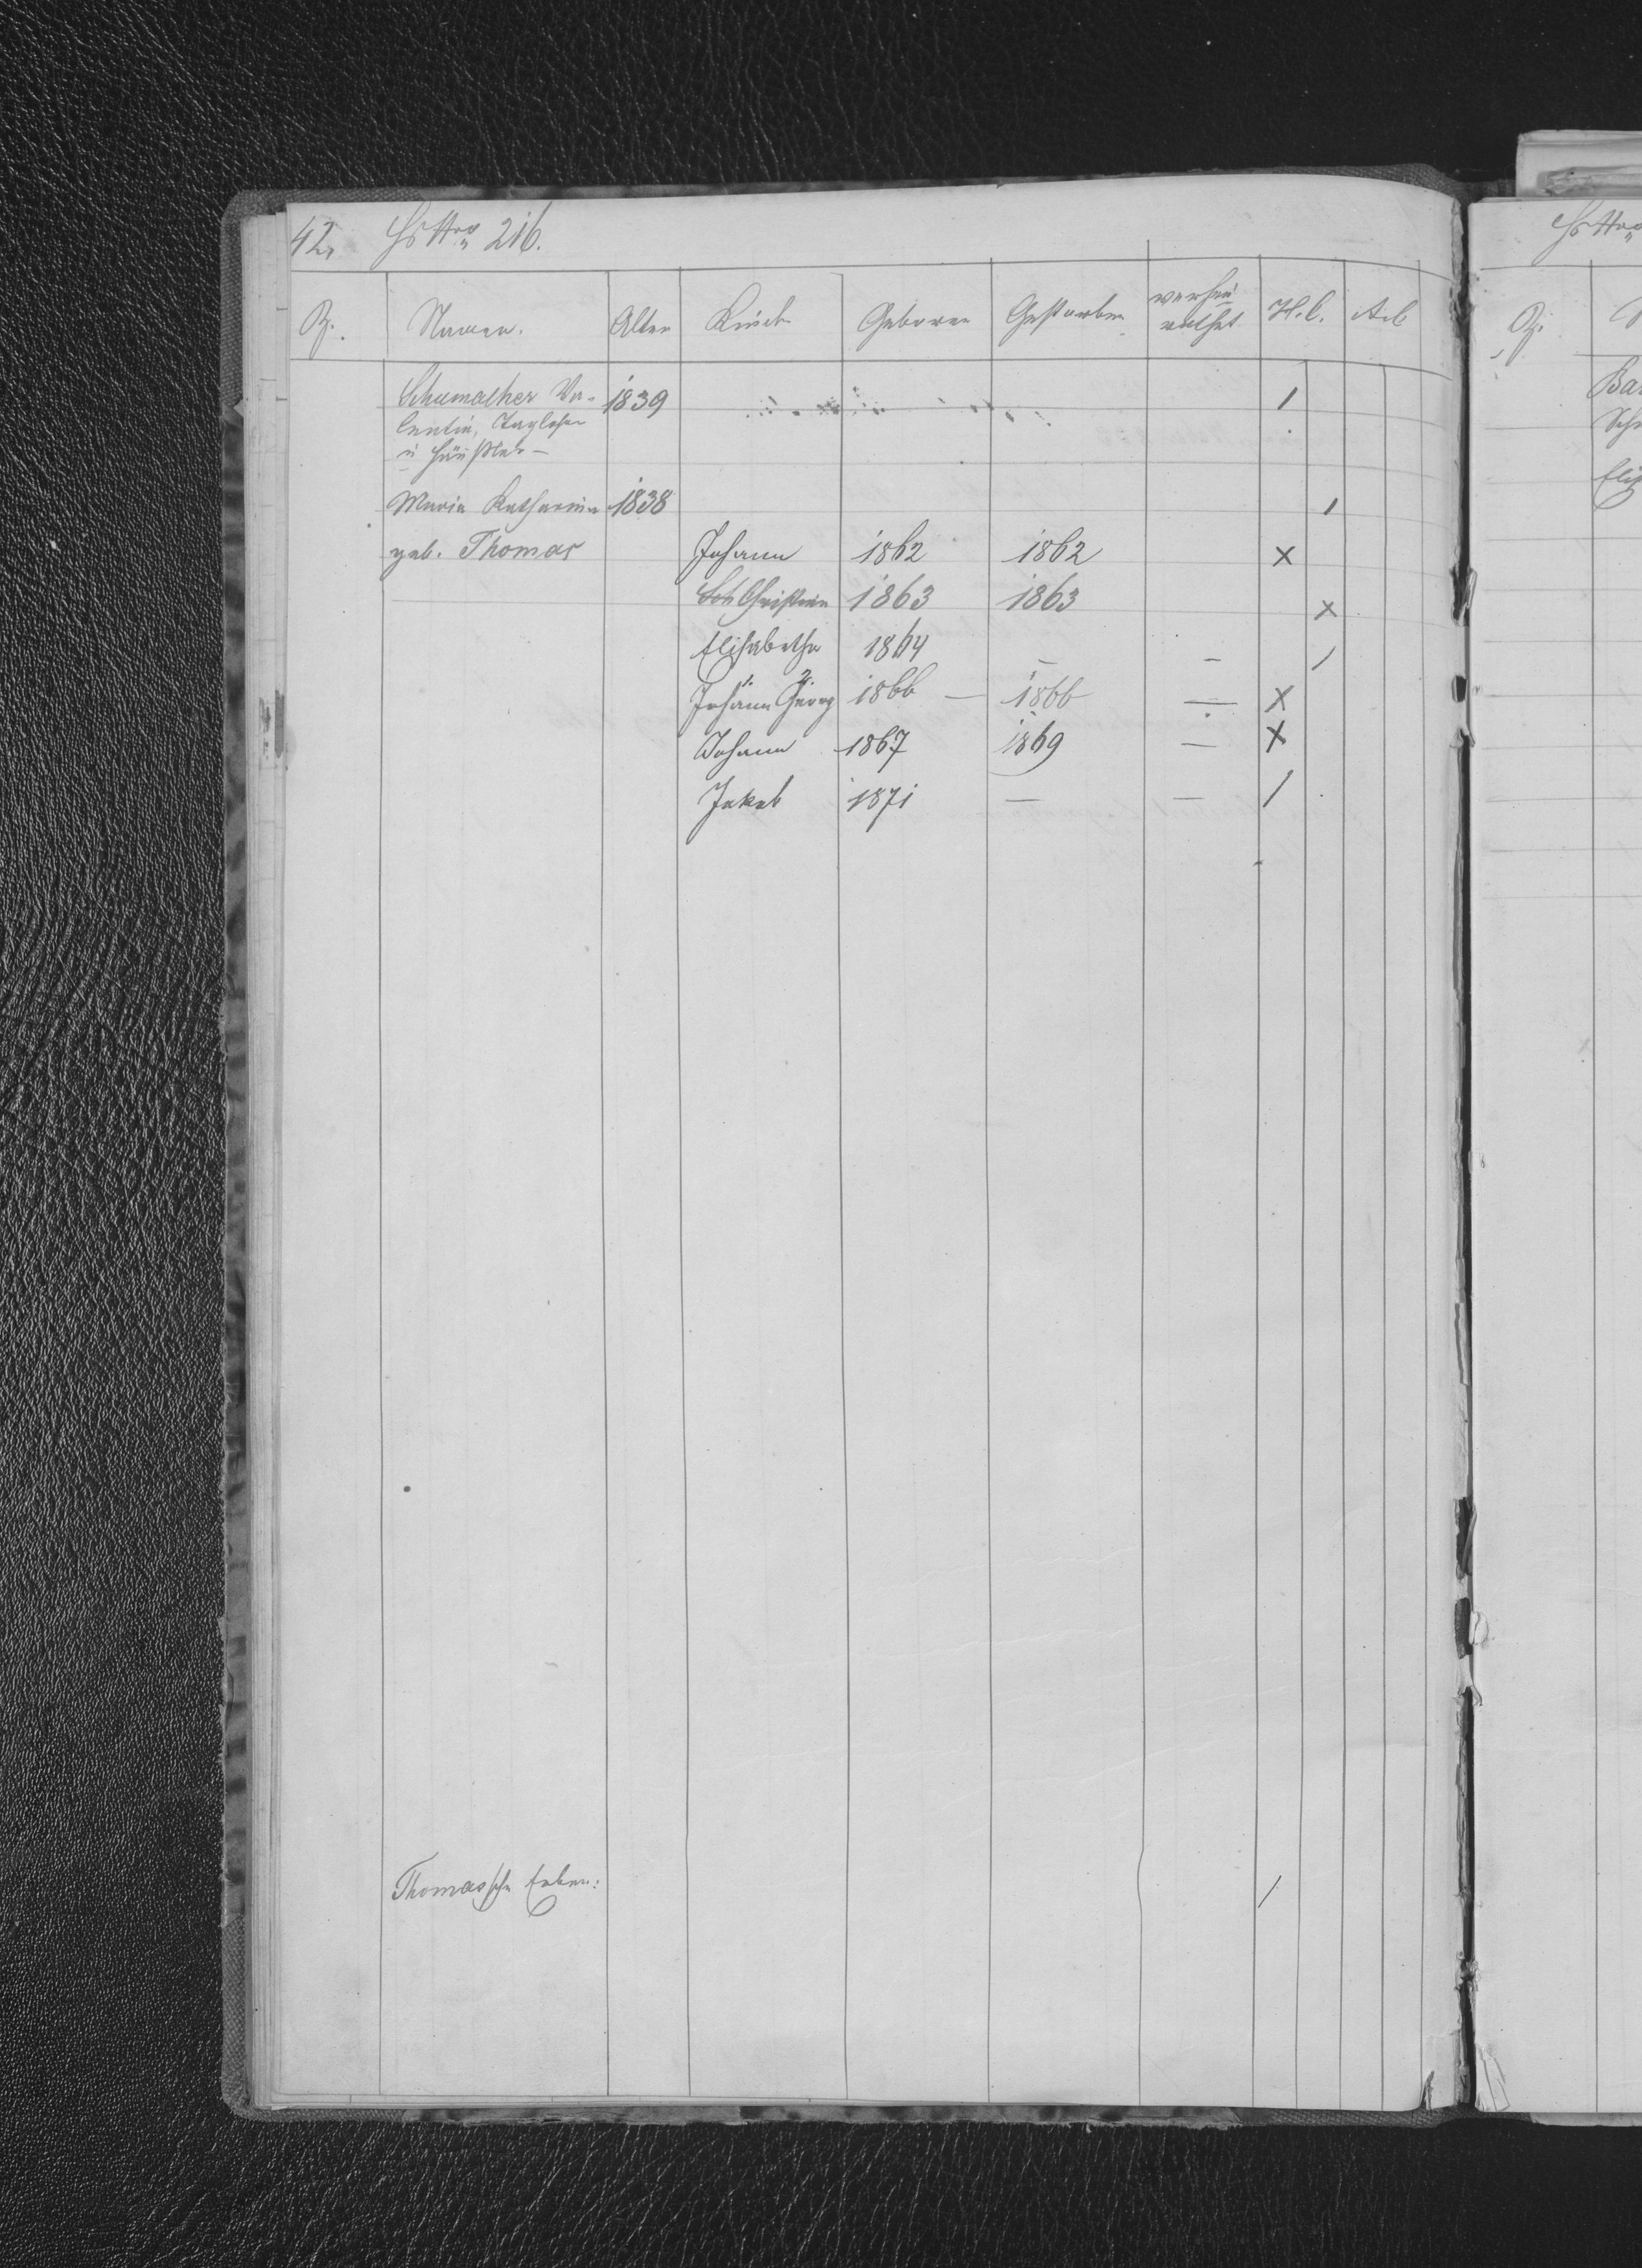 42. Hs No 216.
Z. Namen. Alter Kinder Geboren Gestorben verhei
rathet K. C. Ad
Schumacher Va- 1839 /
lentin, Taglöhner
u Häusler -
Maria Katharina 1838 /
geb. Thomas Johann 1862 1862 x
Christian 1863 1863 x
Elisabetha 1864 - - /
Johann Georg 1866 - 1866 - x
Johann 1867 1869 - x
Jakob 1871 - - /
Thomassche Erben: /
Hs No
Z. N
Ba
Sch
Eli